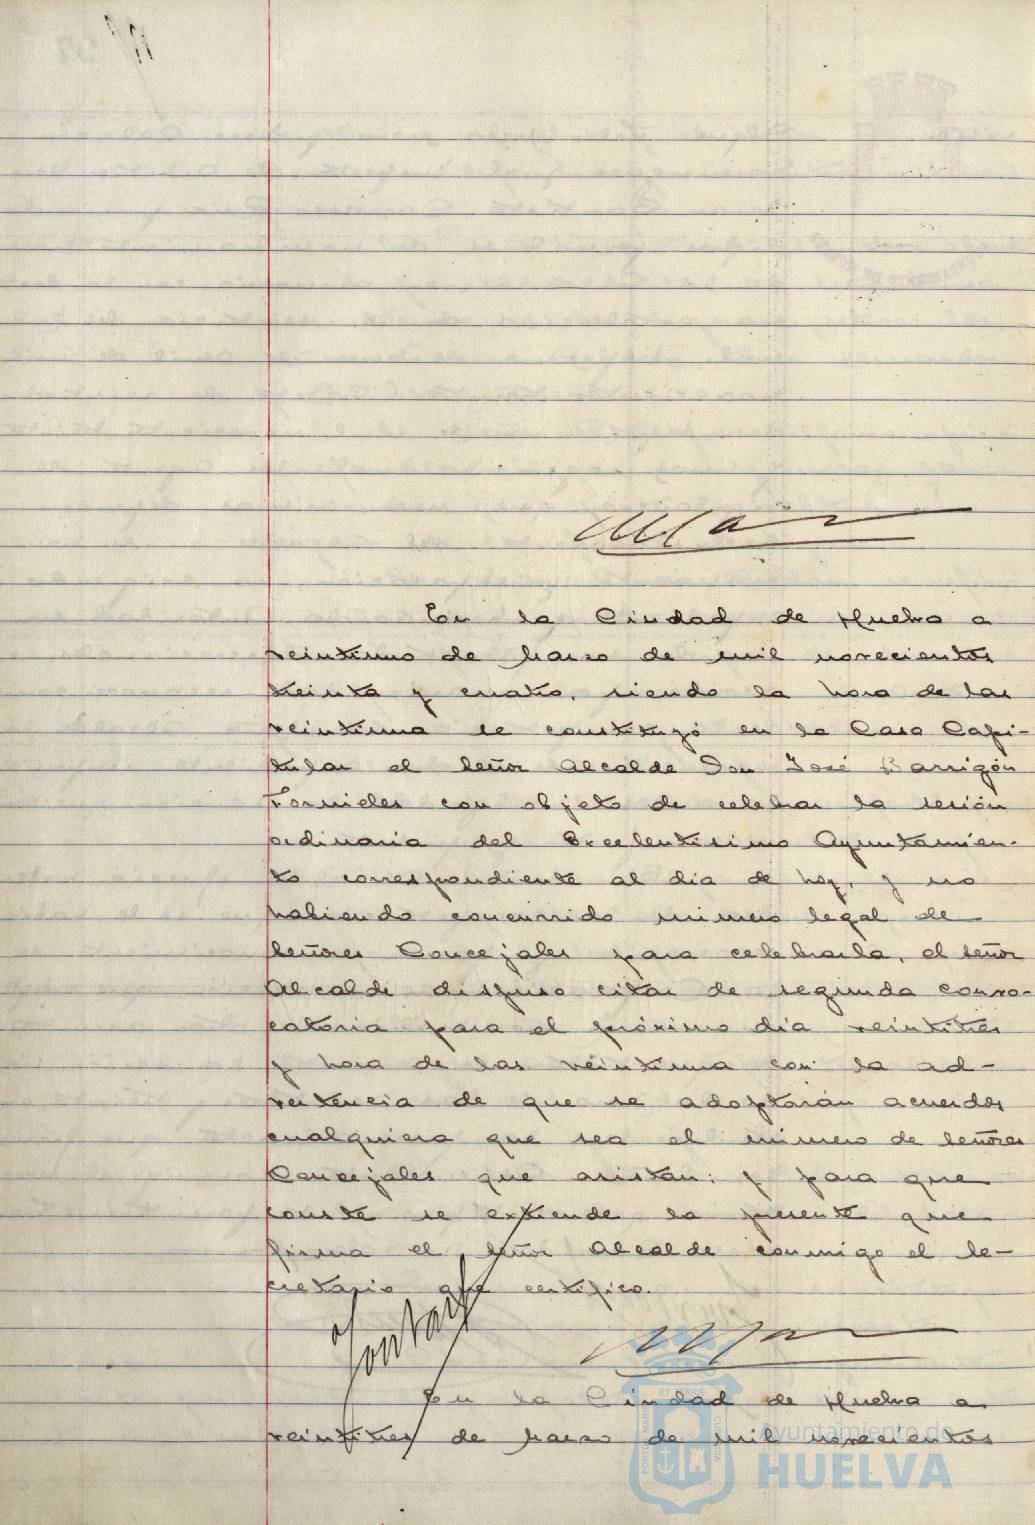 En la Ciudad de Huelva a
veintiuno de Marzo de mil novecientos
treinta y cuatro, siendo la hora de las
veintiuna se constituyó en la Casa Capi-
tular el Señor Alcalde Don José Barrigón
Fornieles con objeto de celebrar la sesión
ordinaria del Excelentísimo Ayuntamien-
to correspondiente al dia de hoy, y no
habiendo concurrido número legal de
Señores Concejales para celebrarla, el Señor
Alcalde dispuso citar de segunda convo-
catoria para el próximo dia veintitres
y hora de las veintiuna con la ad-
vertencia de que se adoptarán acuerdos
cualquiera que sea el número de Señores
Concejales que asistan; y para que
conste se extiende la presente que
firma el Señor Alcalde conmigo el Se-
cretario que certifico.
En la Ciudad de Huelva a
veintitres de Marzo de mil novecientos
Ayuntamiento de
HUELVA